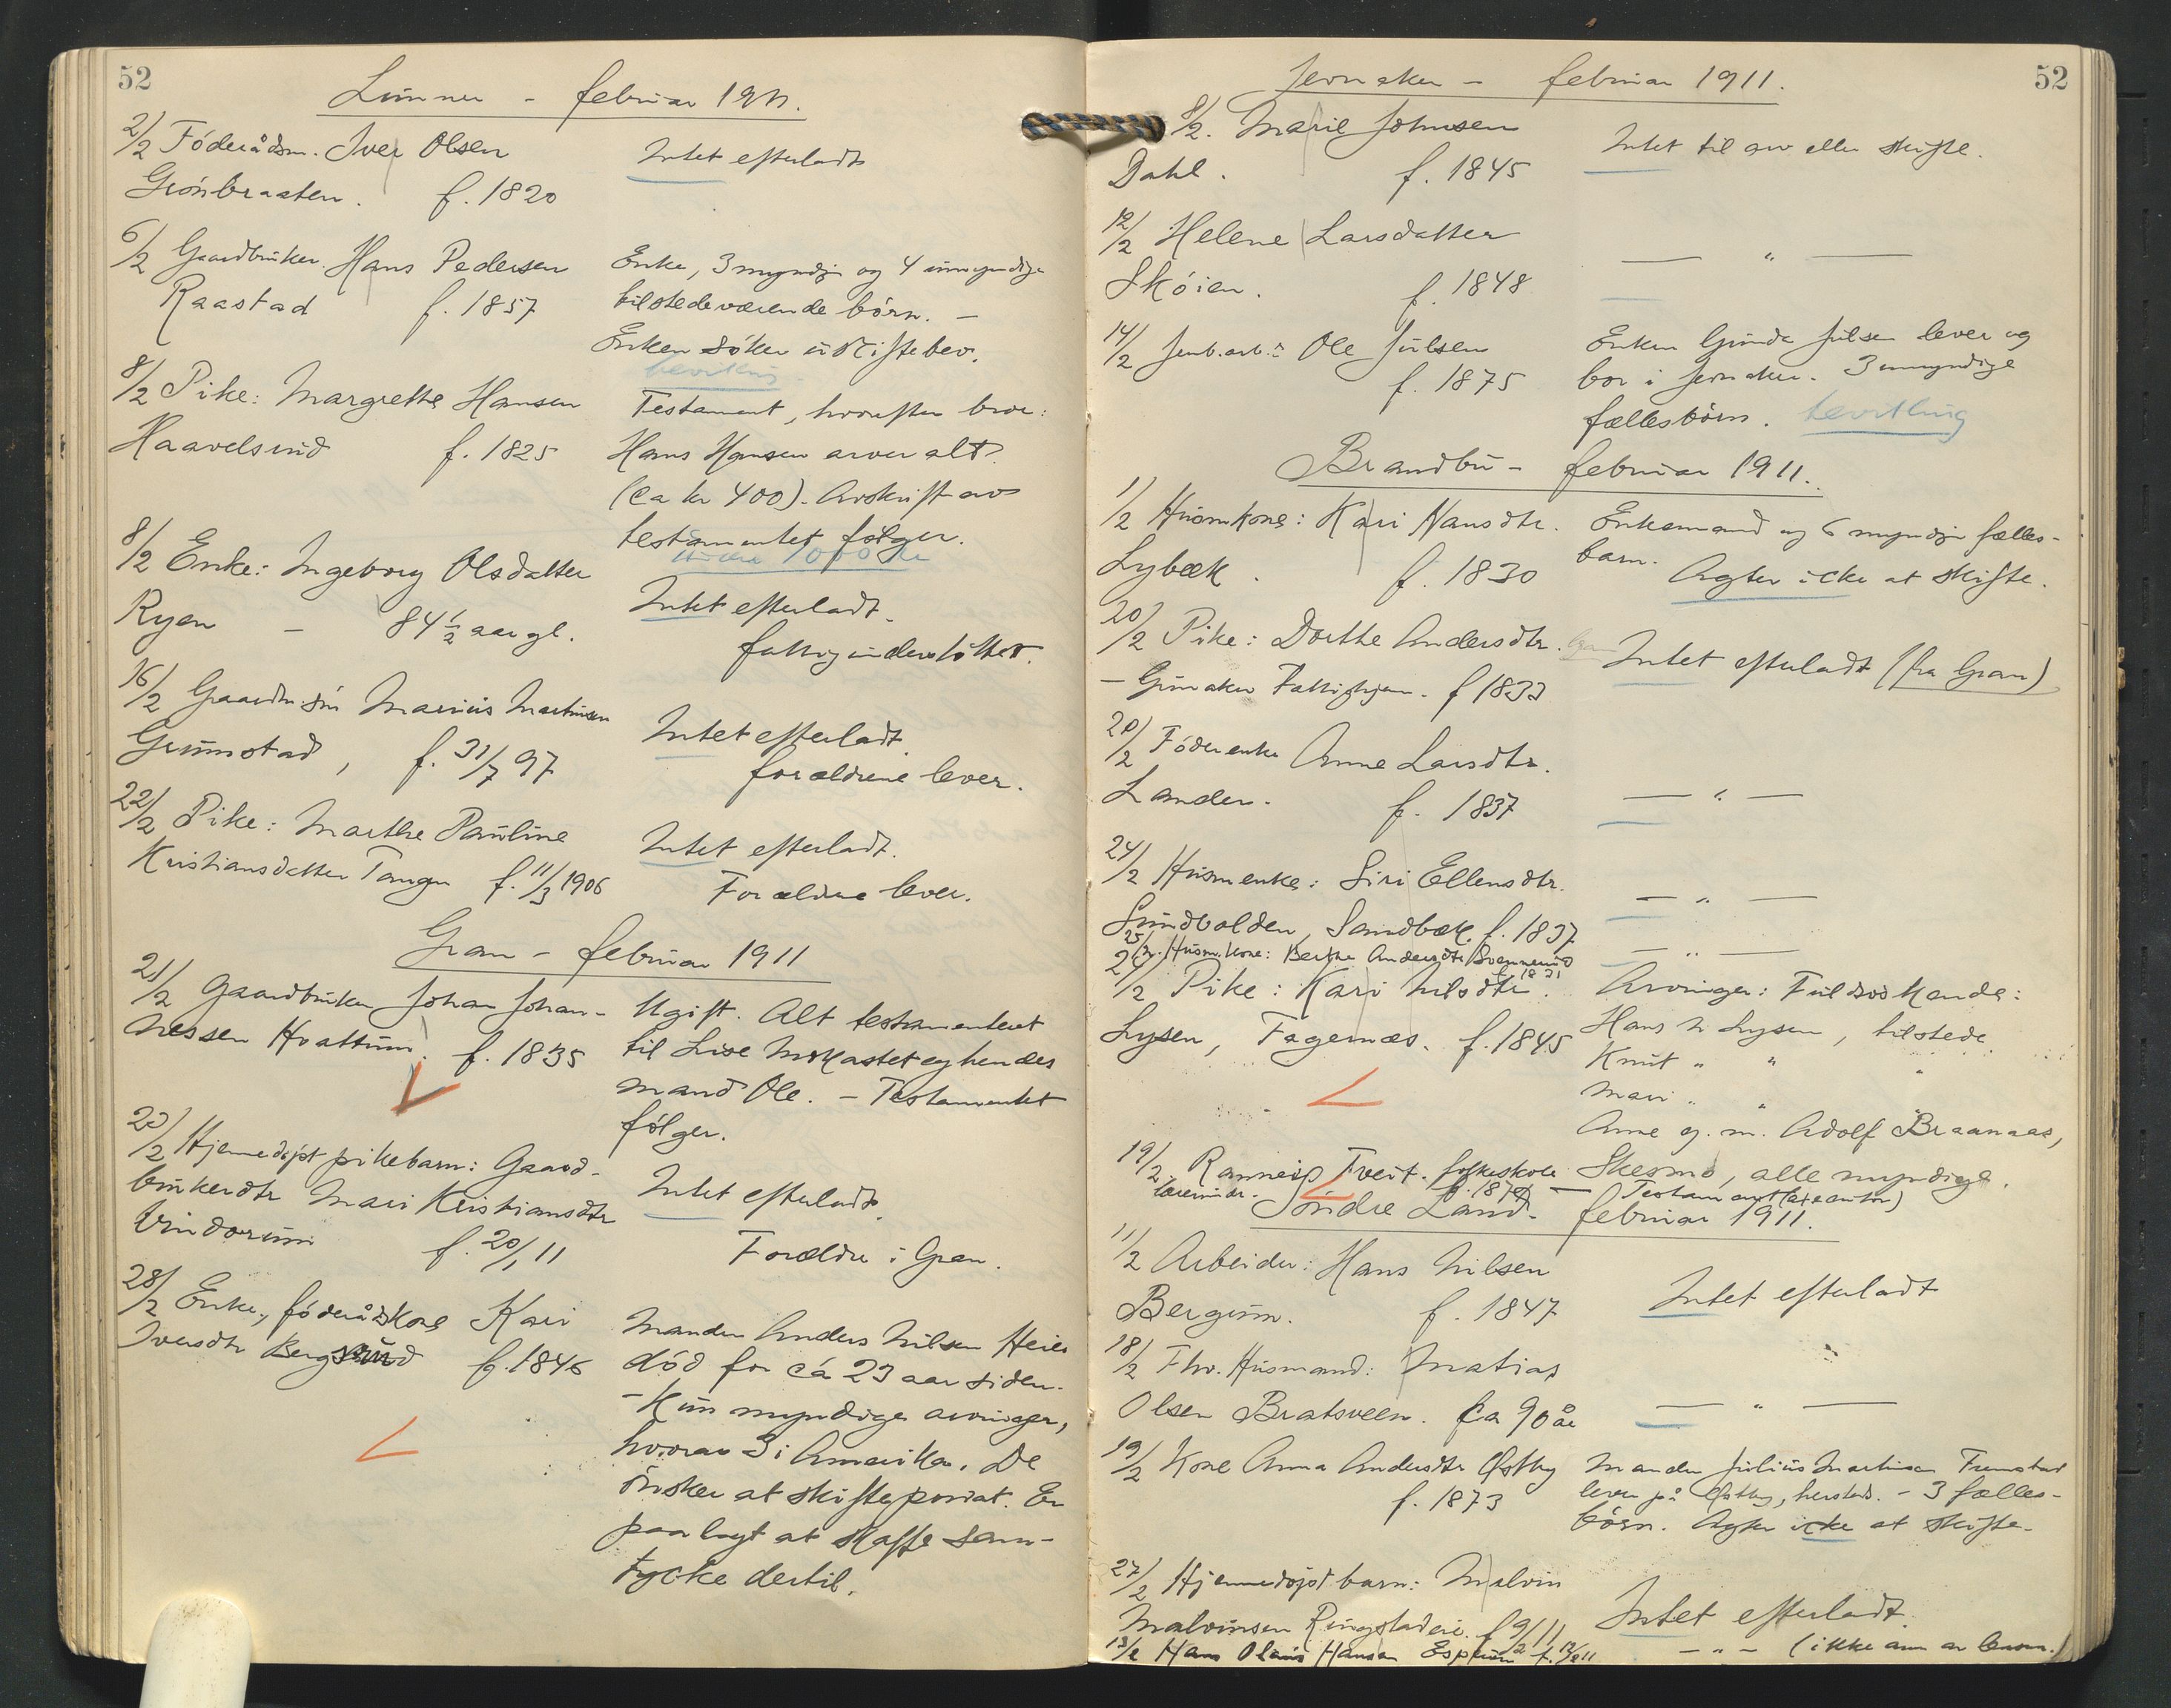 52
Lunner - februar 1911.
2/2 Föderådsm. Iver Olsen
Grönbraaten. f. 1820
Intet efterladt
6/2 Gaardbruker Hans Pedersen
Raastad f. 1857
Enke, 3 myndige og 4 umyndige
tilstedeværende börn. -
Enken söker uskiftebev.
bevilling
8/2 Pike: Margrethe Hansen
Haavelsrud f. 1825
Testament, hvorefter bror:
Hans Hansen arver alt.
(ca kr 400). Avskrift av
testamentet følger.
under 1000 kr
8/2 Enke: Ingeborg Olsdatter
Ryen - 84 1/2 aar gl.
Intet efterladt.
fattigunderstöttet.
16/2 Gaardbr. sön Marius Martinsen
Grinnstad, f. 31/7 97
Intet efterladt.
forældrene lever.
22/2 Pike: Marthe Pauline
Kristiansdatter Tangen f. 11/3 1906
Intet efterladt.
Forældre lever.
Gran - februar 1911
21/2 Gaardbruker Johan Johan-
nessen Hvattum. f. 1835
Ugift. Alt testamenteret
til Lise Mokastet og hendes
mand Ole. - Testamentet
fölger.
22/2 Hjemmedöpt pikebarn: Gaard-
brukerdtr Mari Kristiansdtr
Vindorum f. 20/1 11
Intet efterladt.
Forældre i Gran.
28/2 Enke, föderådskone Kari
Iversdtr Bergsrud f. 1846
Manden Anders Nilsen Heier
död for ca 23 aar siden.
- Kun myndige arvinger,
hvorav 3 i Amerika. De
önsker at skifte privat. Er
paalagt at skaffe sam-
tycke dertil.
52
Jevnaker - februar 1911.
8/2. Marie Johnsen
Dahl. f. 1845
Intet til arv eller skifte.
12/2 Helene Larsdatter
Sköien. f. 1848
— " —
14/2 Jernb.arb.: Ole Julsen
f. 1875
Enken Gunda Julsen lever og
bor i Jevnaker. 3 umyndige
fællesbörn. bevilling
Brandbu - februar 1911.
1/2 Husm.kone: Kari Hansdtr.
Lybæk. f. 1830
Enkemand og 6 myndige fælles-
barn.
Agter icke at skifte.
20/2 Pike: Dorthe Andersdtr.
- Grinaker Fattighjem. f 1833
Intet efterladt (fra Gran)
20/2 Föderenke Anne Larsdtr.
Lander. f. 1837
— " —
24/2 Husm.enke: Siri Ellensdtr.
Sundvolden, Sandbæk f. 1837
— " —
25/2. Husm.kone: Berthe Andersdtr Svennerud
f. 1831
— " —
24/2 Pike: Kari Nilsdtr.
Lysen, Fagernæs. f. 1845
Arvinger: Fuldsöskende:
Hans N. Lysen, tilstede
Knut " " "
Mari " " "
Anne g. m. Adolf Braanaas,
Skesmo, alle myndige.
19/2. Ranneig Tveit. folkeskole-
lærerinde. f. 1874 - Testament
Söndre Land - februar 1911.
11/2 Arbeider: Hans Nilsen
Bergum. f. 1847
Intet efterladt
18/2 Fhv. Husmand: Matias
Olsen Bratsveen. Ca 90 år
— " —
19/2 Kone Anna Andersdtr Østby
f. 1873
Manden Julius Martinsen Fremstad
lever på Østby, hersteds. - 3 fælles-
börn. Agter icke at skifte.
27/2 Hjemmedöpt barn: Malvin
Malvinsen Ringstadeie. f 9/2 11
Intet efterladt.
13/2 Hans Olaus Hansen Esperum f. 12/2 11
- " - (ikke ann. av lensm.)